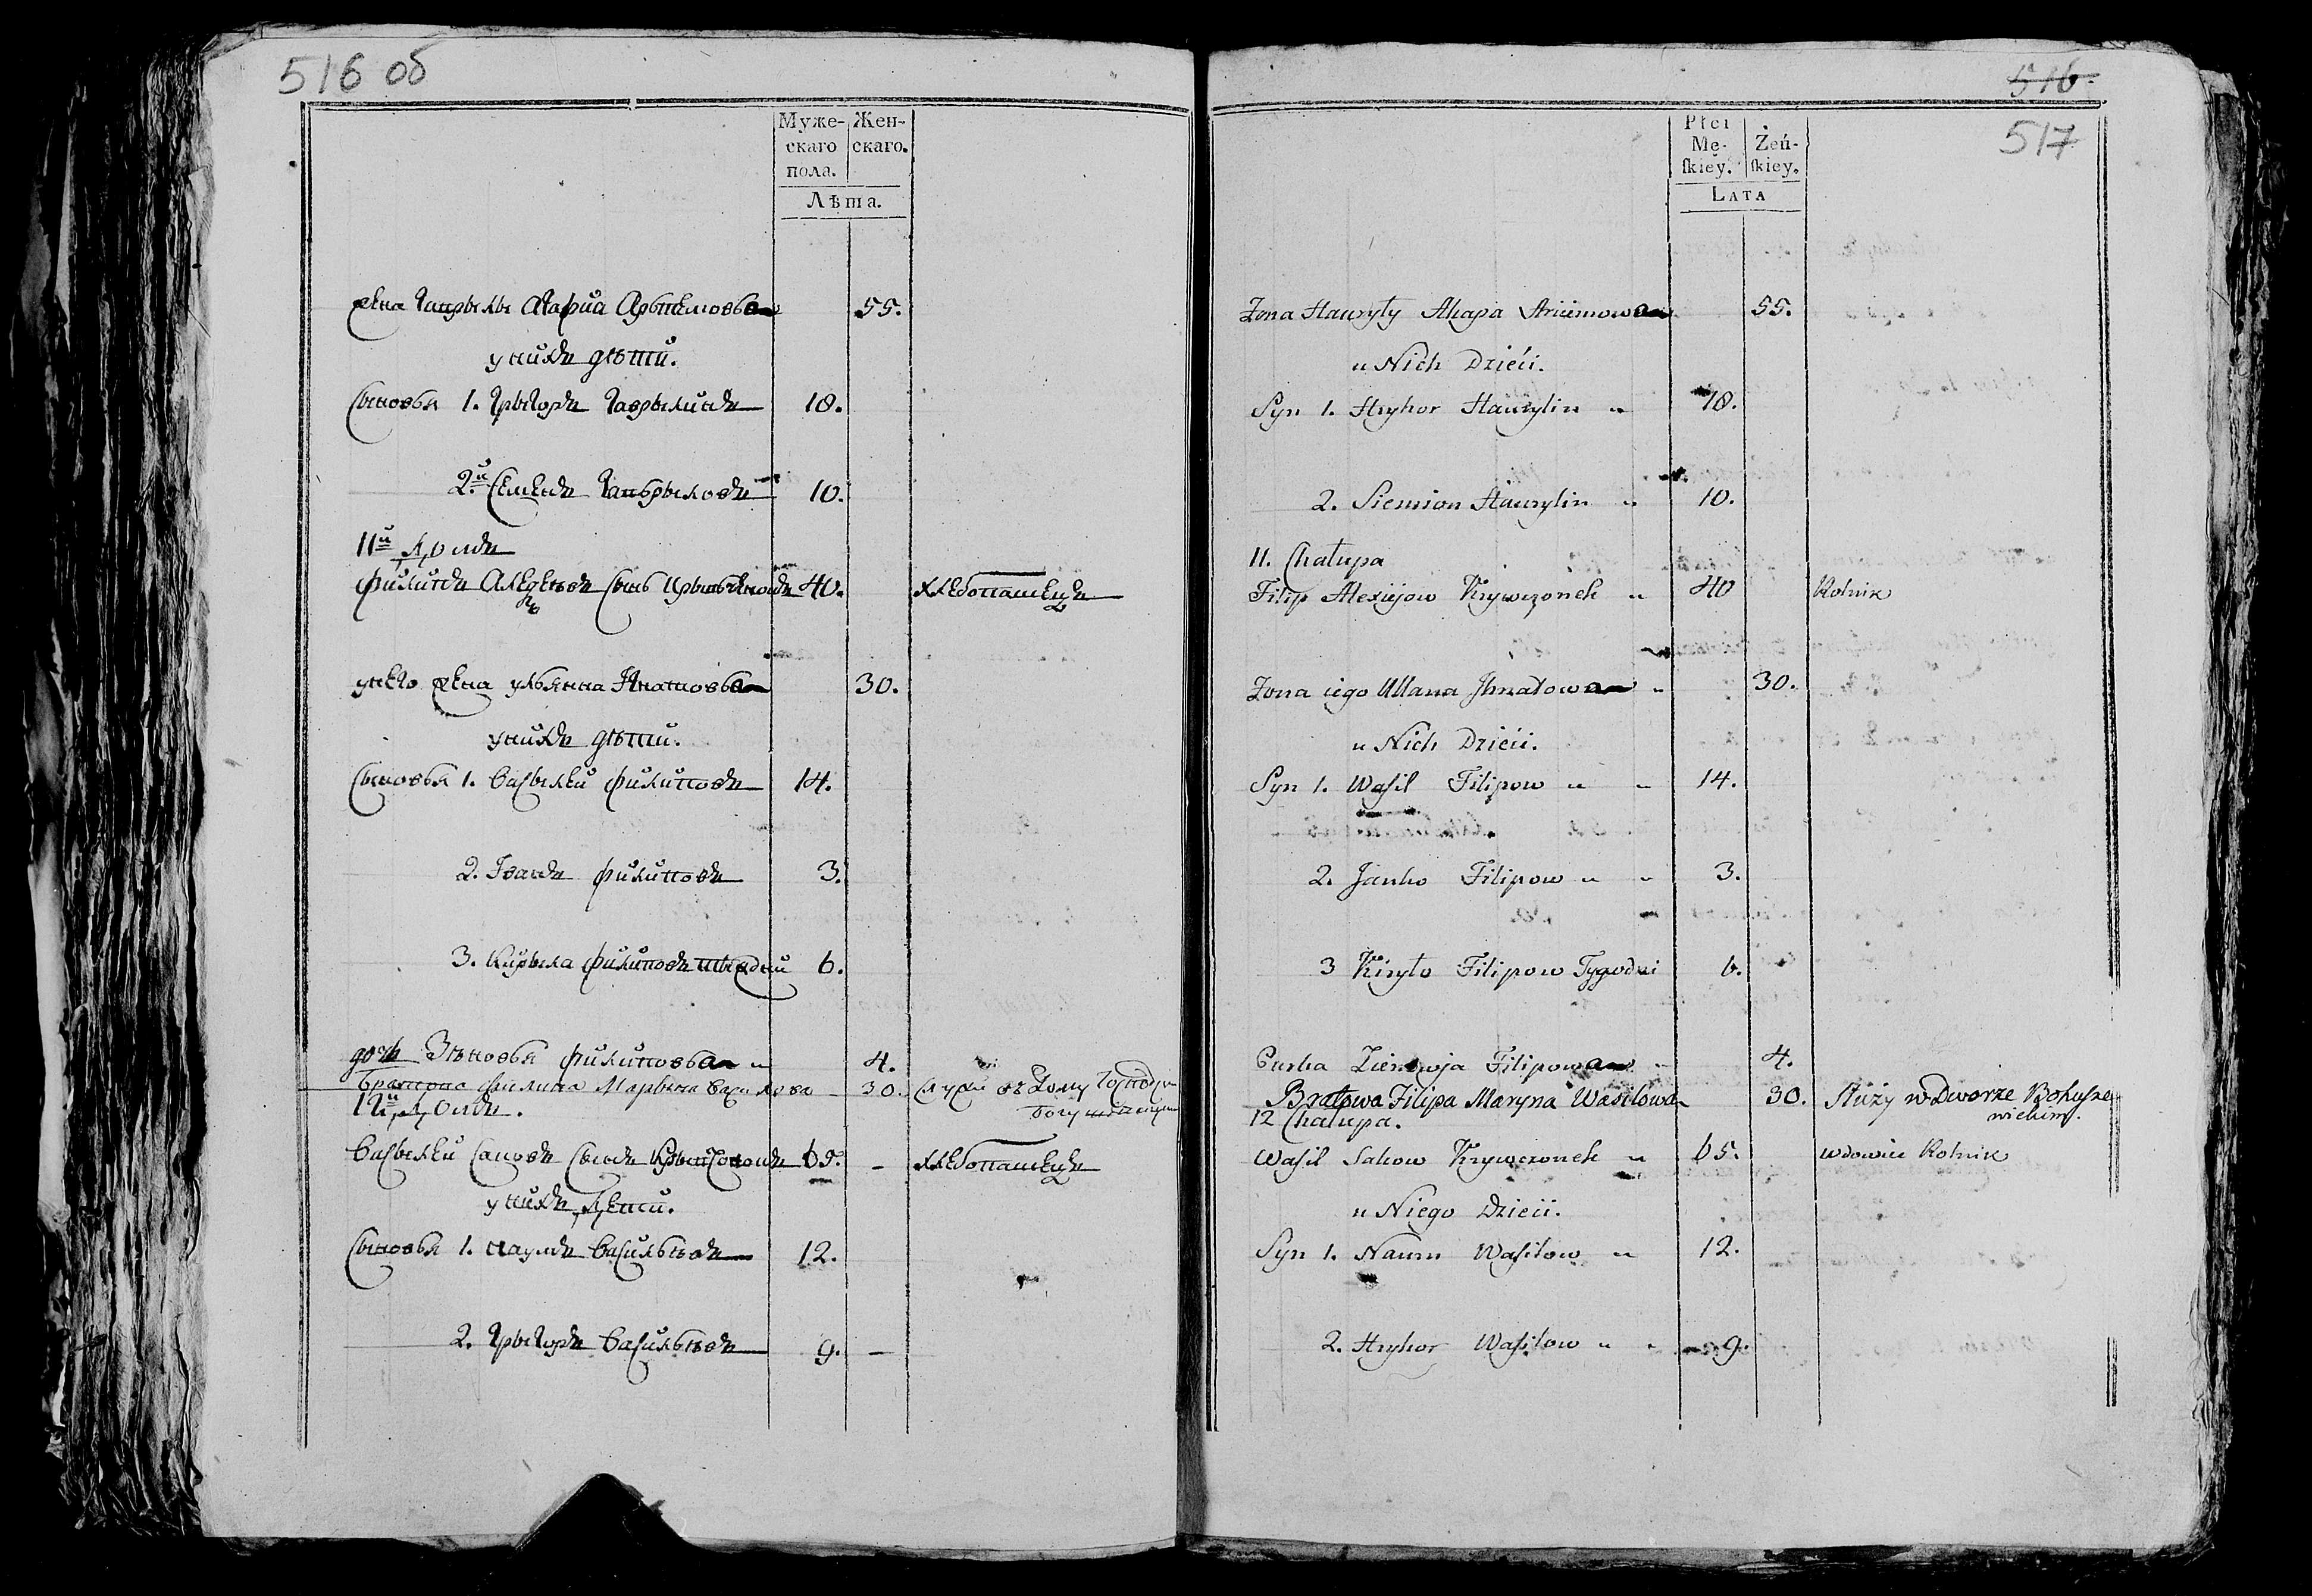 516 об
Муже-
скаго
пола.
Жен-
скаго.
Лѣта.
жена Гаврылы Агафиа Артемовва 55.
у нихъ дѣти.
Сыновья 1. Грыгоръ Гаврылинъ 18.
2й Семенъ Гаврыловъ 10.
11й Домъ
Филипъ Алексѣевъ Сынъ 40. хлебопашецъ
у него жена Ульянна Игнатовва 30.
у нихъ дѣти.
Сыновья 1. Васылей Филиповъ 14.
2. Іванъ Филиповъ 3.
3. Кирыла Филиповъ 6.
дочь Зѣновья Филиповва 4.
Филипа Марына Василова 30.
12й Домъ.
Васылей Саковъ Сынъ 65. – хлебопашецъ
у нихъ Дети.
Сыновья 1. Наумъ Васильевъ 12.
2. Грыгоръ Васильевъ 9. –
516.
517
Płci
Mę-
skiey.
Żeń-
skiey.
LATA
Żona Hauryły Ahapa Arciimowa 55.
u Nich Dzieci.
Syn 1. Hryhor Haurylin " 18.
2. Siemion Haurylin " 10.
11. Chałupa
Filip Alexiejow Krywczonek " 40 Rolnik
Zona iego Ullana Jhnatowa " 30.
u Nich Dzieci.
Syn 1. Wasil Filipow " " 14.
2. Janko Filipow " " 3.
3 Kiryło Filipow Tygodni 6.
Curka Zienowja Filipowa " 4.
Bratowa Filipa Maryna Wasilowa 30. Służy w Dworze Bohusze
wickim.
12 Chałupa.
Wasil Sakow Krywczonek " 65. wdowiec Rolnik
u Niego Dzieci.
Syn 1. Naum Wasilow " 12.
2. Hryhor Wasilow " " 9.